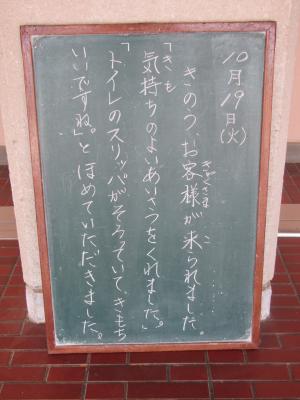 10月19日(火)
きのう、お客様が来られました。
「気持ちのよいあいさつをくれました。」
「トイレのスリッパがそろっていて、きもち
いいですね。」とほめていただきました。